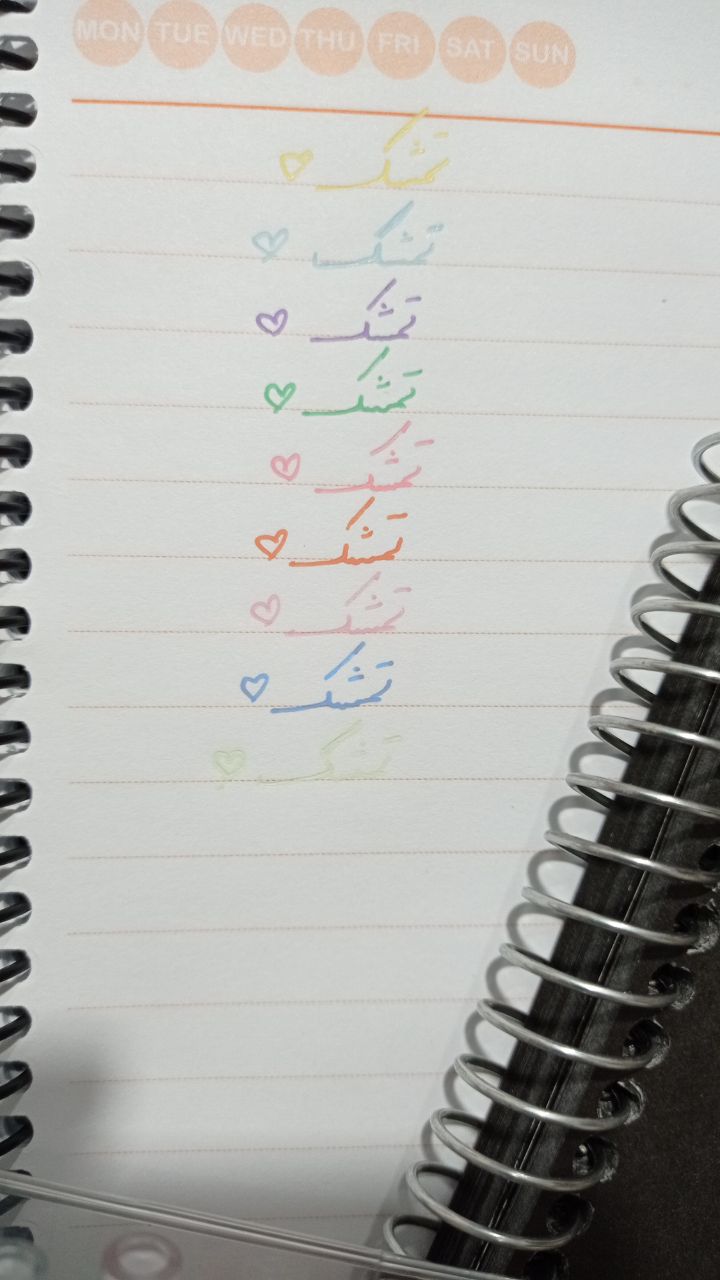 MON TUE WED THU FRI SAT SUN
تمشک ♡
تمشک ♡
تمشک ♡
تمشک ♡
تمشک ♡
تمشک ♡
تمشک ♡
تمشک ♡
تمشک ♡